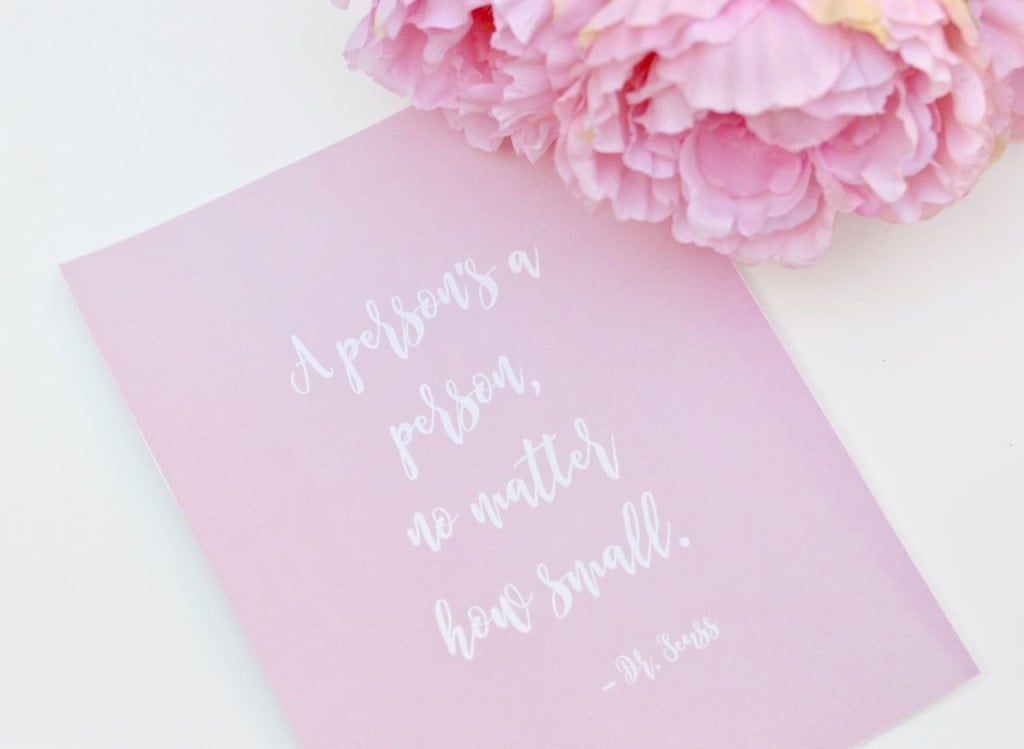 A person's a
person,
no matter
how small.
-Dr. Seuss